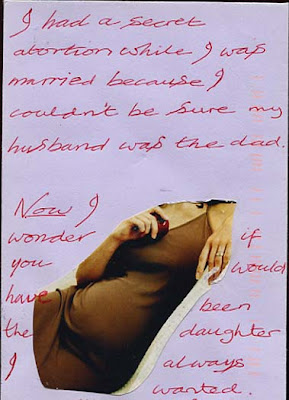 I had a secret
abortion while I was
married because I
couldn't be sure my
husband was the dad.
Now I
wonder if
you would
have been
the daughter
I always
wanted.